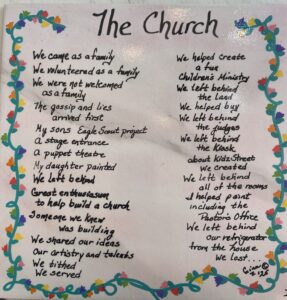 The Church
We came as a family
We volunteered as a family
We were not welcomed
as a family
The gossip and lies
arrived first
My sons Eagle Scout project
A stage entrance
A puppet theatre
My daughter painted
We left behind
Great enthusiasm
to help build a church
Someone we knew
was building
We shared our ideas
Our artistry and talents
We tithed
We served
We helped create
a fun
Children's Ministry
We left behind
the land
We helped buy
We left behind
the judges
We left behind
the Kiosk
about Kids Street
we created
We left behind
all of the rooms
I helped paint
including the
Pastor's Office
We left behind
our refrigerator
from the house
we lost...